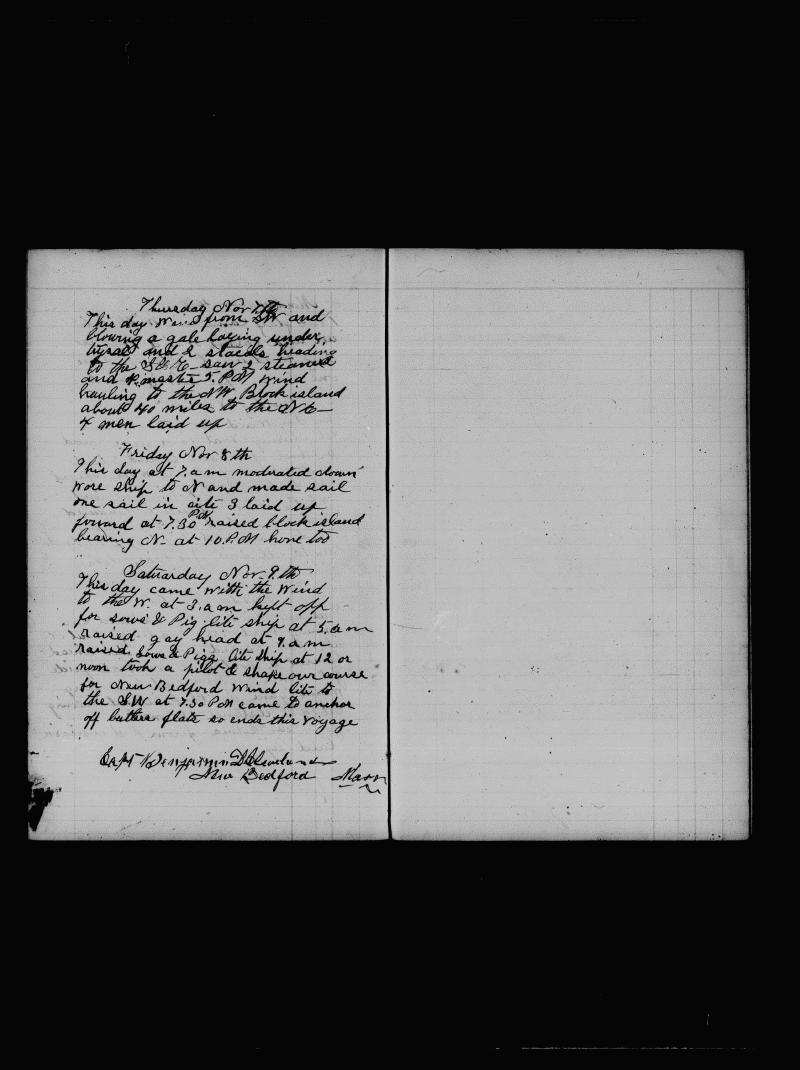 Thursday Nov 7th
This day wind from SW and
blowing a gale laying under
trysail and 2 staysls heading
to the S & E - saw 2 steamers
and 4 master 5. P.M wind
hauling to the NW Block island
about 40 miles to the NE -
4 men laid up
Friday Nov 8th
This day at 7. a m moderated down
wore ship to N and made sail
one sail in cite 3 laid up
forward at 7.30 PM raised block island
bearing N. at 10. P.M hove too
Saturday Nov. 9th
This day came with the Wind
to the W. at 3. a m kept off
for sows & Pig lite ship at 5. a m
raised gay head at 9. a m
raised Sows & Pigs lite Ship at 12 or
noon took a pilot & shape our course
for New Bedford wind lite to
the SW at 7.30 P M came to anchor
off butlers flats so ends this voyage
Capt Benjamin D Cleveland
New Bedford Mass